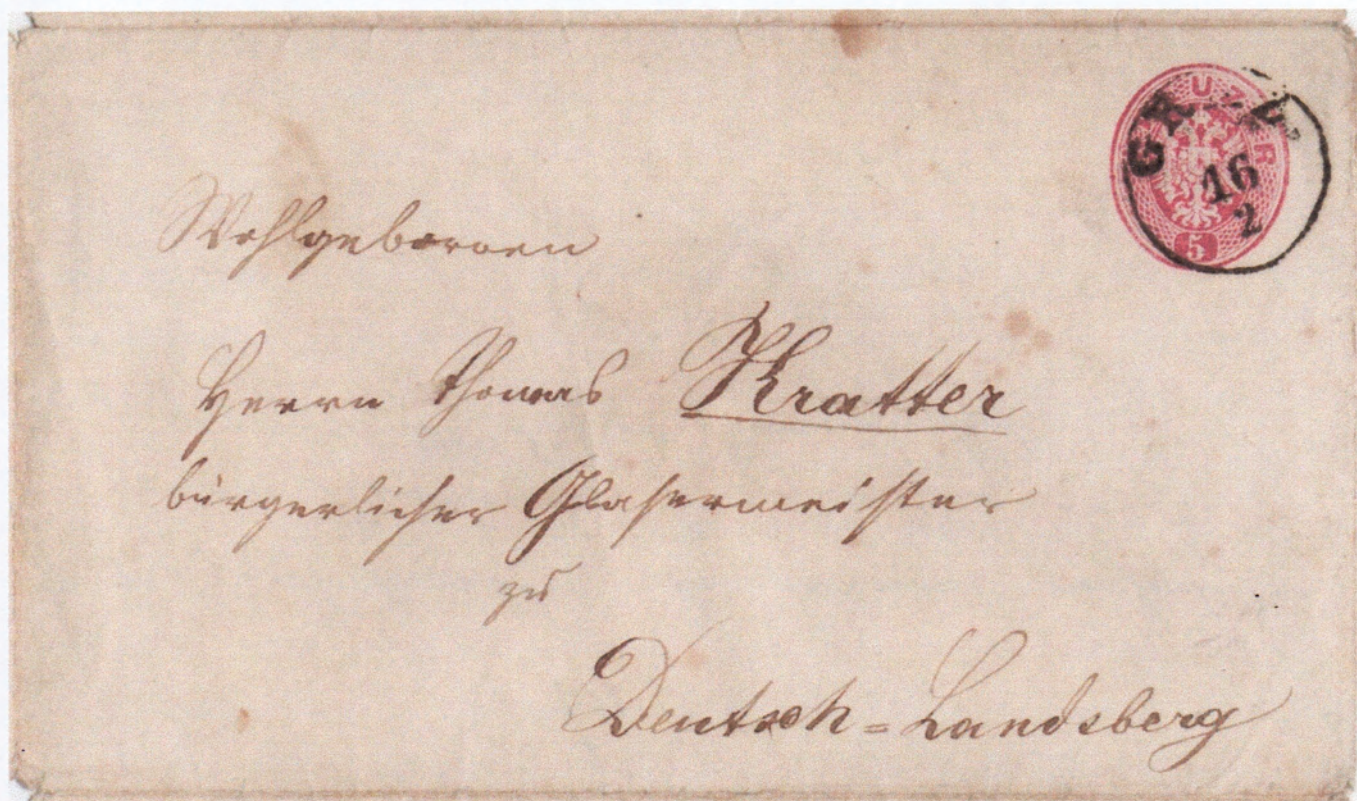 KREUZER
5
GRATZ
16
2
Wohlgeboren
Herrn Thomas Kratter
bürgerlicher Glasermeister
zu
Deutsch=Landsberg